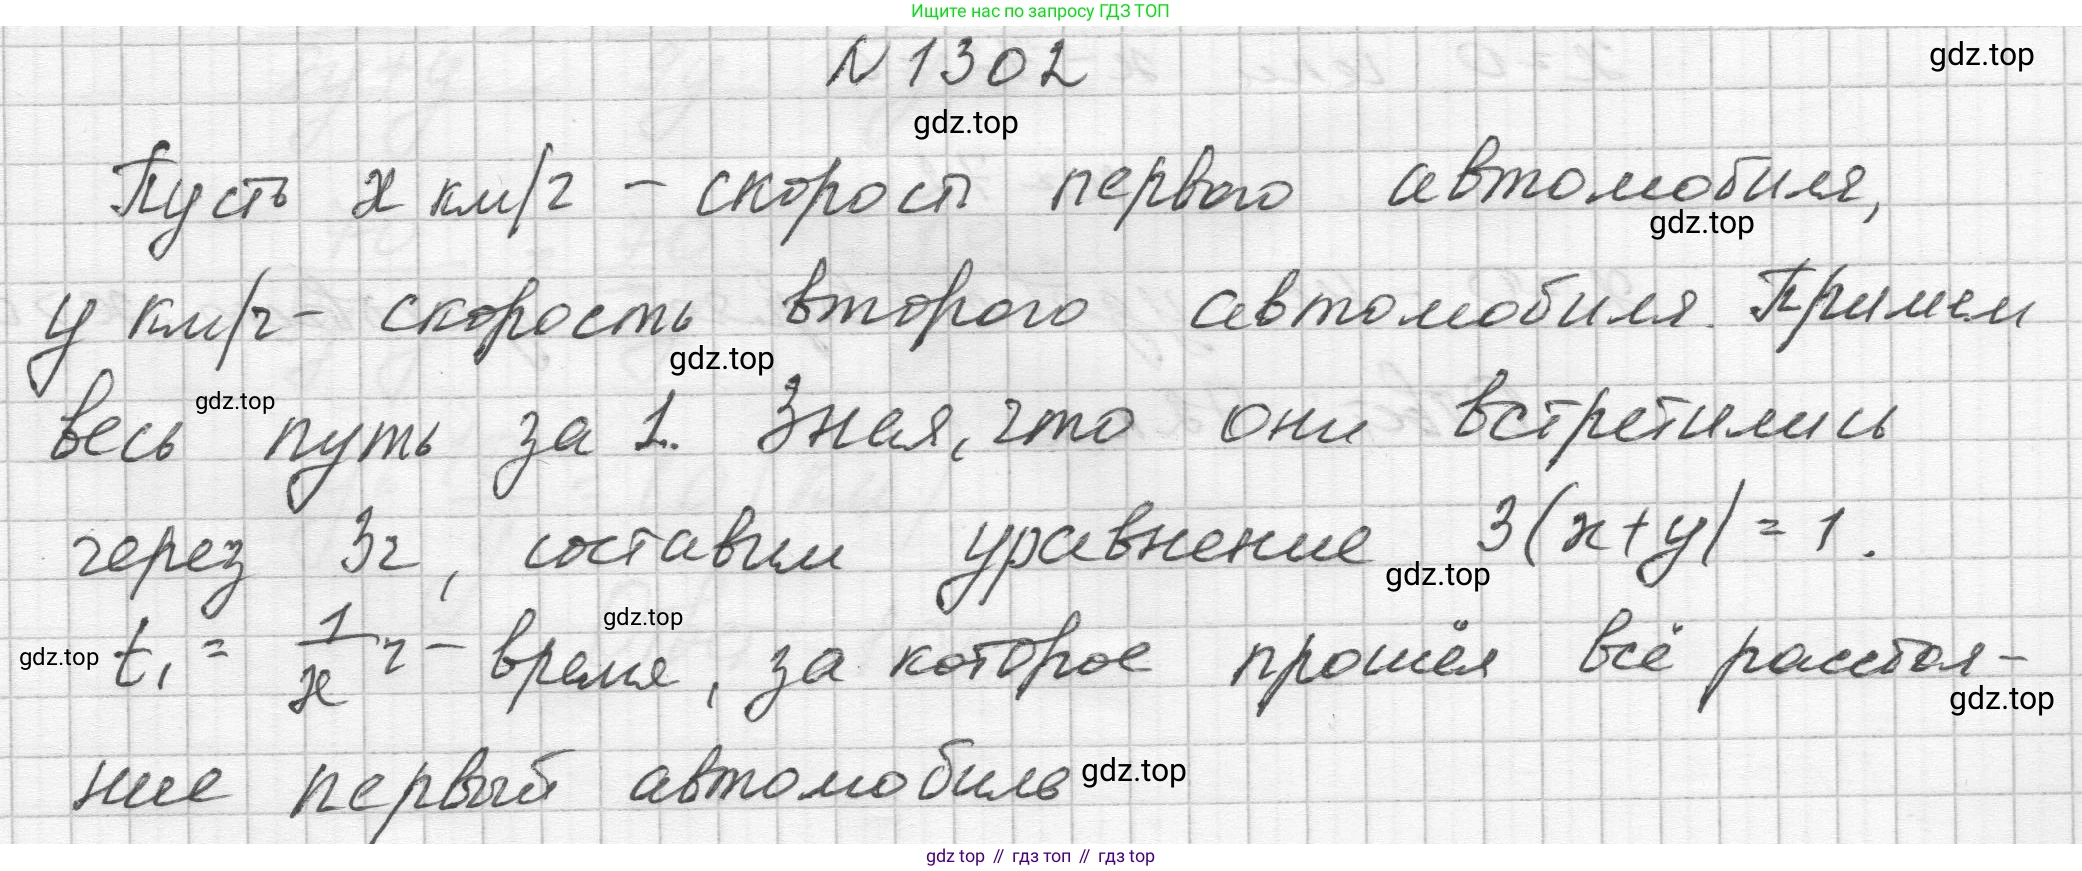 Ищите нас по запросу ГДЗ ТОП
N 1302
gdz.top
gdz.top
Пусть x км/ч – скорость первого автомобиля,
gdz.top
y км/ч – скорость второго автомобиля. Примем
gdz.top
весь путь за 1. Зная, что они встретились
gdz.top
через 3ч, составим уравнение 3(x+y)=1.
gdz.top
gdz.top
t₁ = 1/x ч – время, за которое прошёл всё расстоя-
gdz.top
gdz.top
ние первый автомобиль
gdz.top
gdz top // гдз топ // гдз top